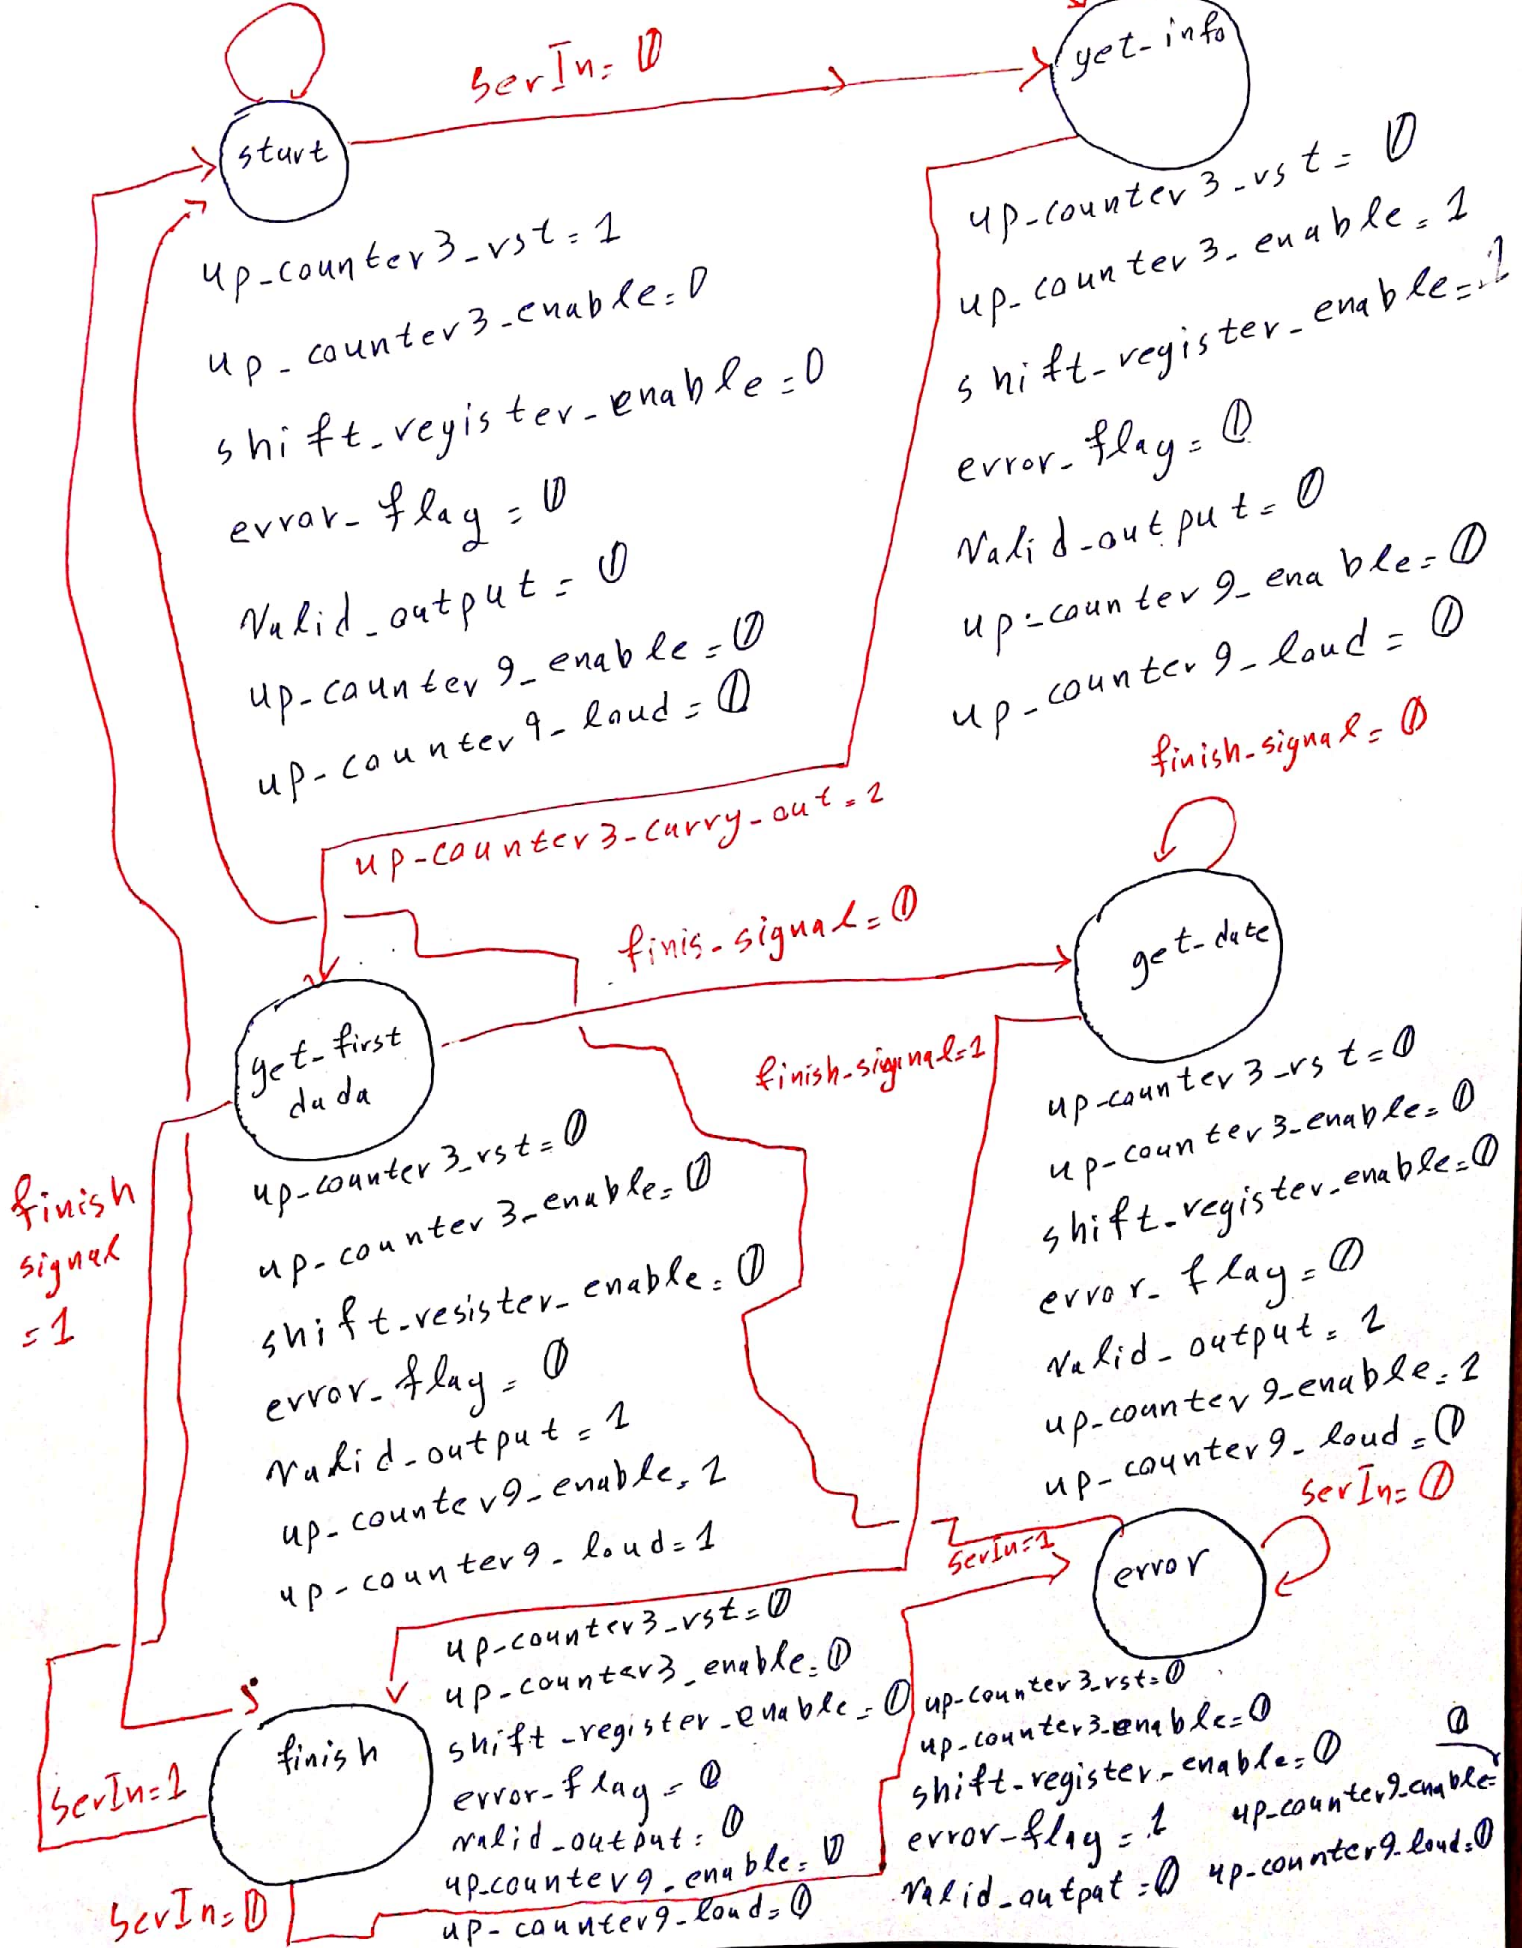 SerIn=0
get-info
start
up-counter3-rst=0
up-counter3-enable=1
shift-register-enable=1
error-flag=0
Valid-output=0
up-counter9-enable=0
up-counter9-load=0
up-counter3-rst=1
up-counter3-enable=0
shift-register-enable=0
error-flag=0
Valid-output=0
up-counter9-enable=0
up-counter9-load=0
finish-signal=0
up-counter3-carry-out=1
finis-signal=0
get-date
get-first
dada
finish-signal=1
up-counter3-rst=0
up-counter3-enable=0
shift-register-enable=0
error-flag=0
Valid-output=1
up-counter9-enable=1
up-counter9-load=0
finish
signal
=1
up-counter3-rst=0
up-counter3-enable=0
shift-resister-enable=0
error-flag=0
Valid-output=1
up-counter9-enable=1
up-counter9-load=1
SerIn=0
SerIn=1
error
up-counter3-rst=0
up-counter3-enable=0
shift-register-enable=0
error-flag=0
valid-output=0
up-counter9-enable=0
up-counter9-load=0
finish
SerIn=1
SerIn=0
up-counter3-rst=0
up-counter3-enable=0
shift-register-enable=0
error-flag=1
Valid-output=0
0
up-counter9-enable=
up-counter9-load=0